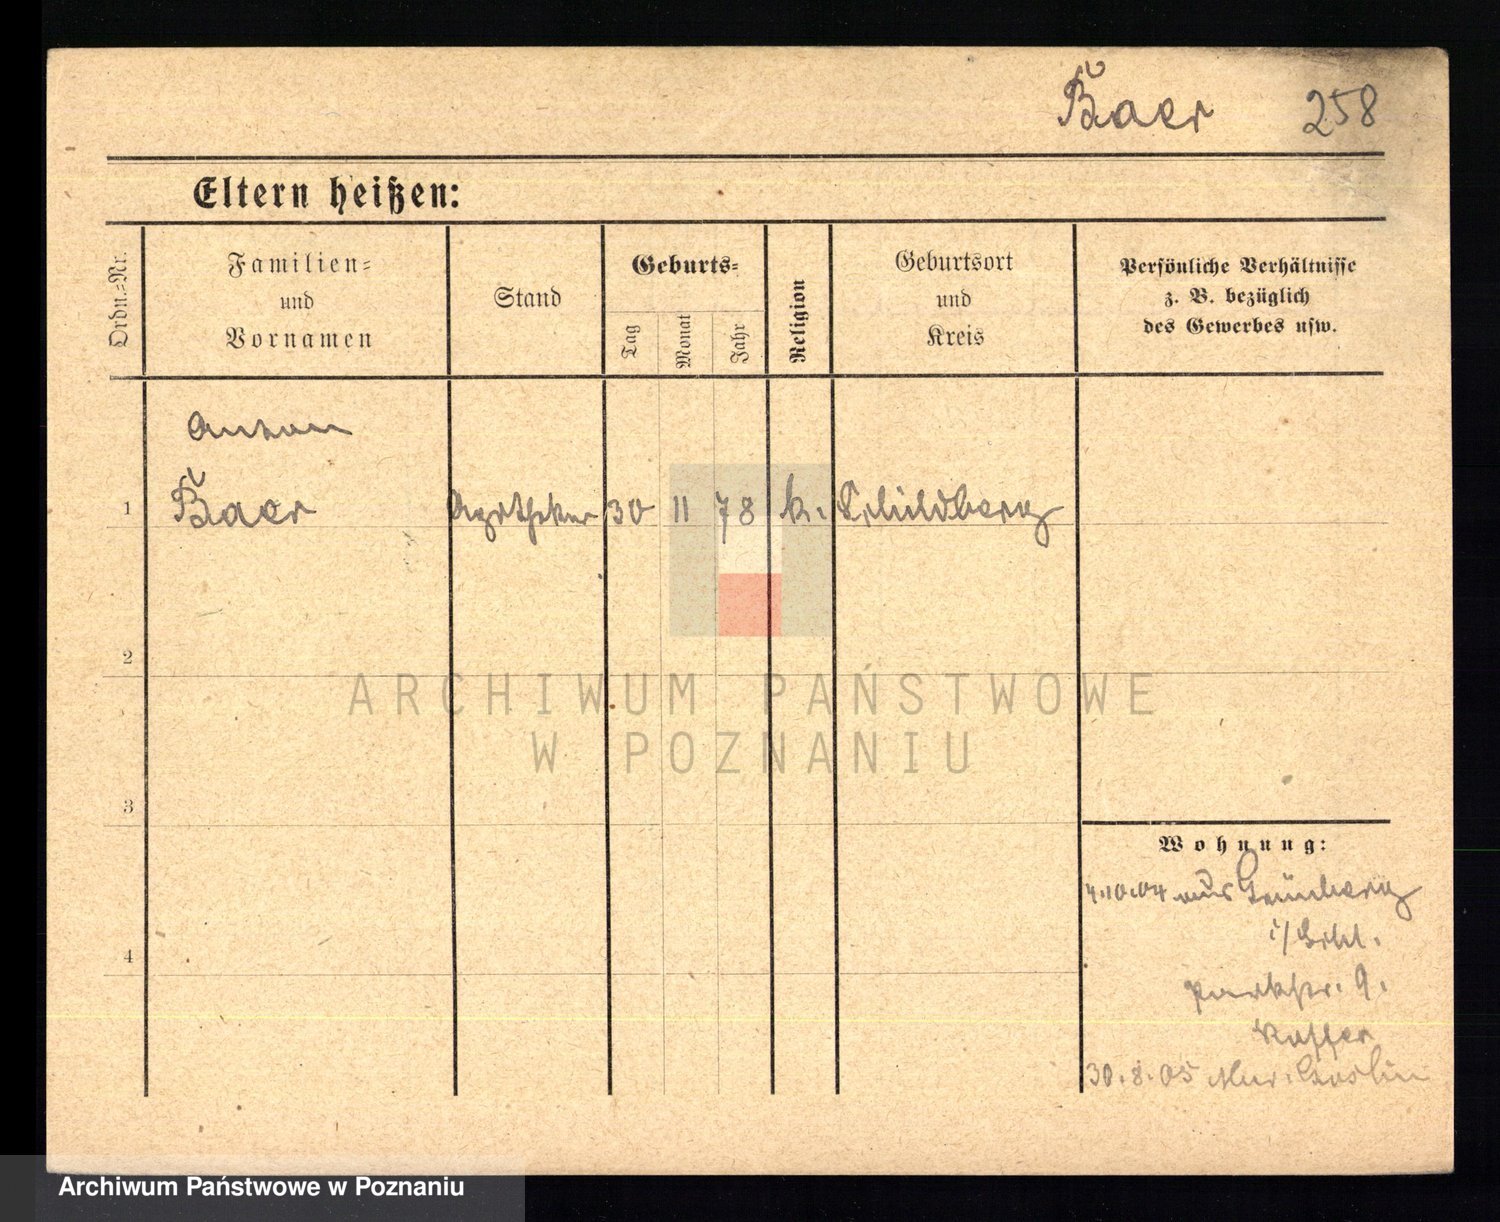 Baer 258
Eltern heißen:
Ordn.=Nr.
Familien=
und
Vornamen
Stand
Geburts=
Tag
Monat
Jahr
Religion
Geburtsort
und
Kreis
Persönliche Verhältnisse
z. B. bezüglich
des Gewerbes usw.
Anton
1 Baer Apotheker 30 11 78 k. Schildberg
2
3
4
ARCHIWUM PAŃSTWOWE
W POZNANIU
Wohnung:
4.10.04 aus Grünberg
i/Schl.
Parkstr. 9.
30.8.05 Mur. Goslin
Archiwum Państwowe w Poznaniu